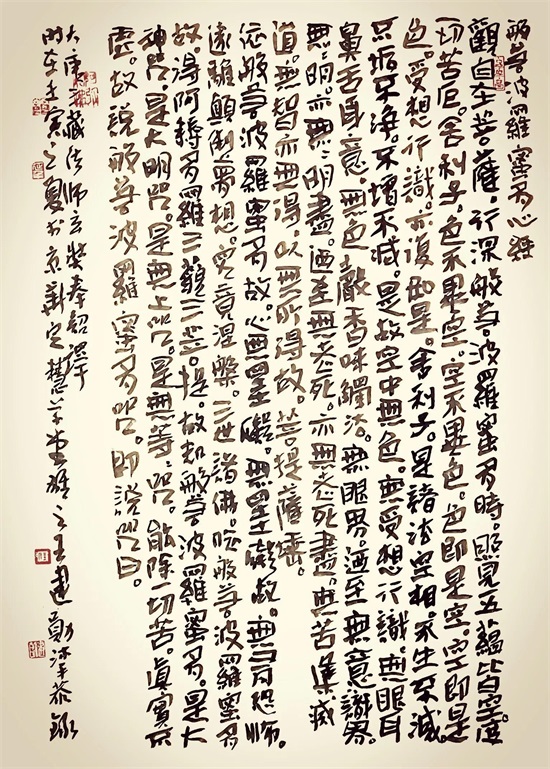 般若波羅蜜多心經
觀自在菩薩。行深般若。波羅蜜多時。照見五蘊皆空。度
一切苦厄。舍利子。色不異空。空不異色。色即是空。空即是
色。受想行識。亦復如是。舍利子。是諸法空相。不生不滅。
不垢不淨。不增不減。是故空中無色。無受想行識。無眼耳
鼻舌身意。無色聲香味觸法。無眼界。迺至無意識界。
無無明。亦無無明盡。迺至無老死。亦無老死盡。無苦集滅
道。無智亦無得。以無所得故。菩提薩埵。
依般若波羅蜜多故。心無罣礙。無罣礙故。無有恐怖。
遠離顛倒夢想。究竟涅槃。三世諸佛。依般若。波羅蜜多
故。得阿耨多羅三藐三菩提。故知般若波羅蜜多。是大
神咒。是大明咒。是無上咒。是無等。咒。能除一切苦。真實不
虛。故說般若波羅蜜多咒。即說咒曰。
大唐三藏法師玄奘奉詔譯
時在壬寅之夏於京華定慧草堂之王建勛沐手恭錄